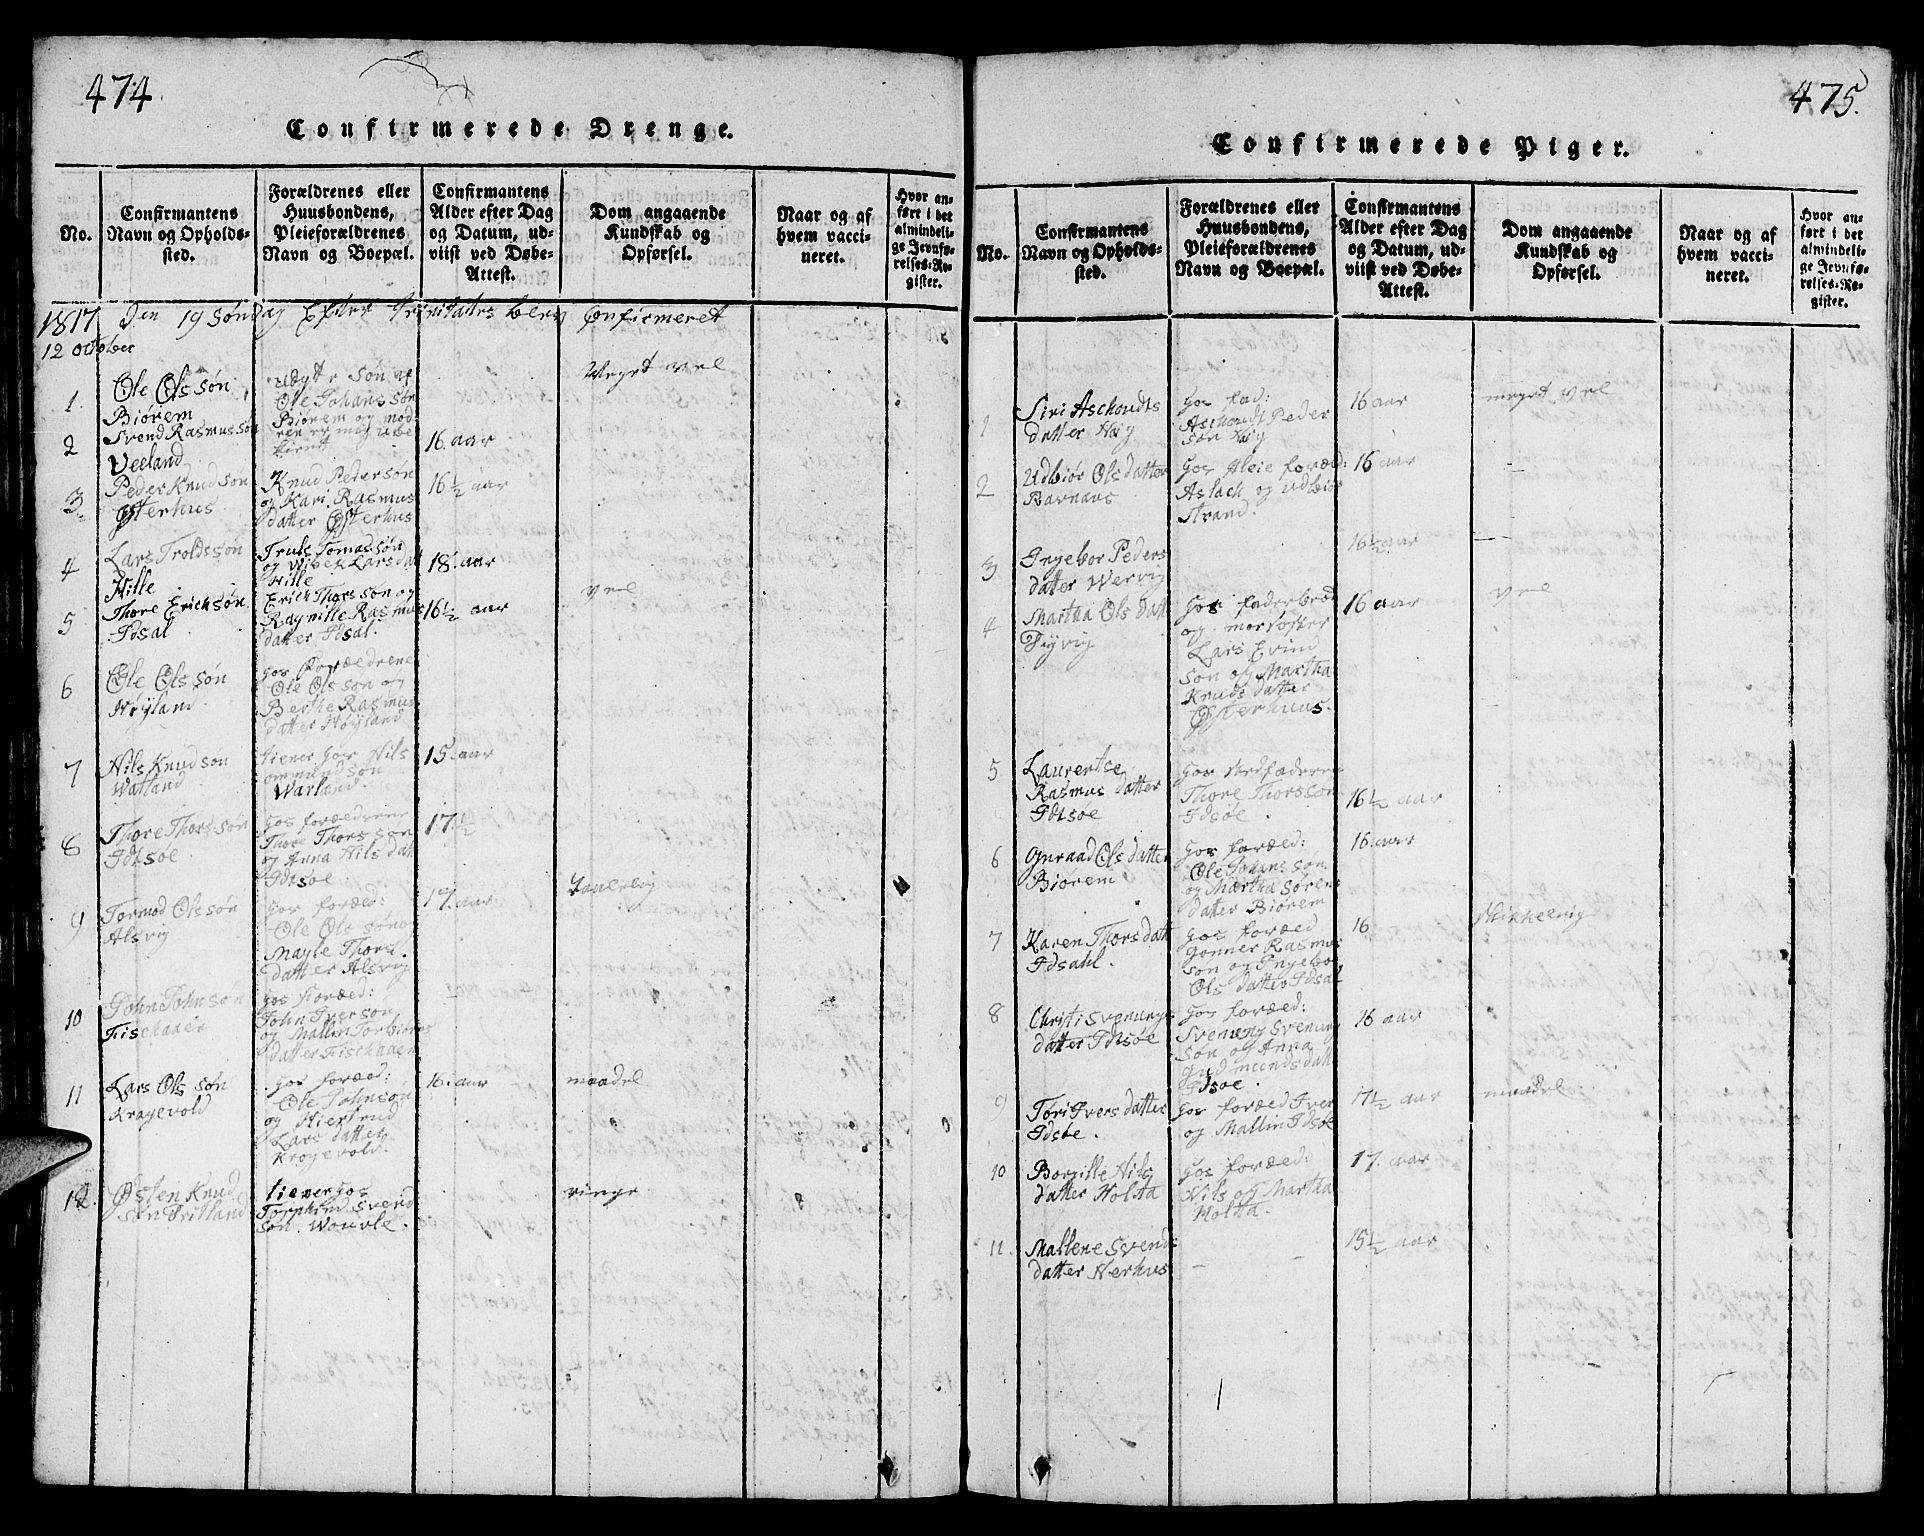 474.
Confirmerede Drenge.
No.
Confirmantens
Navn og Opholds-
sted.
Forældrenes eller
Huusbondens,
Pleieforældrenes
Navn og Boepæl.
Confirmantens
Alder efter Dag
og Datum, ud-
viist ved Døbe-
Attest.
Dom angaaende
Kundskab og
Opførsel.
Naar og af
hvem vacci-
neret.
Hvor an-
ført i det
almindeli-
ge Jevnfø-
relses-Re-
gister.
1817 Den 19 Søndag Efter Trinitates blev Confirmeret
12 october
1.
Ole Olssøn
Biørem
Uægte Søn af
Ole Johanssøn
Biørem og mod
ren er mig ube
kiendt
Meget vel
2
Svend Rasmussøn
Veeland
16 aar
3.
Peder Knudsøn
Østerhus
Knud Pedersøn
og Kari Rasmus
datter Østerhus
16 1/2 aar
4
Lars Troldssøn
Hille
Truls Tomassøn
og Vibek Larsdat
Hille
18 aar
5
Thore Erichsøn
Idsal
Erich Thorssøn og
Ragnille Rasmus
datter Idsal.
16 1/2 aar
vel
6
Ole Olssøn
Høyland
hos Forældrene
Ole Olssøn og
Berthe Rasmus
datter Høyland
7
Nils Knudsøn
Watland
tiener hos Nils
Ommundsøn
Warland
15 aar
8
Thore Thorssøn
Idtsøe
hos forældrene
Thore Thorssøn
og Anna Nils dat
Idtsøe
17 1/2
9
Tormod Olssøn
Alsvig
hos foræld:
Ole Ols søn og
Magle Thors
datter Alsvig
17. aar
Taalelig
10
John Johnsøn
Fischaaen
hos Foræld:
John Iversøn
og Mallin Torbiørns
datter Fischaaen
11
Lars Olssøn
Kragevold
hos foræld:
Ole Johnsøn
og Kiertrud
Lars datter
Krogevold.
16. aar
maadel
12.
Østen Knud
søn Britland
tiener hos
Torphind Svend
søn. Wouvle.
ringe
475.
Confirmerede Piger.
No.
Confirmantens
Navn og Opholds-
sted.
Forældrenes eller
Huusbondens,
Pleieforældrenes
Navn og Boepæl.
Confirmantens
Alder efter Dag
og Datum, ud-
viist ved Døbe-
Attest.
Dom angaaende
Kundskab og
Opførsel.
Naar og af
hvem vacci-
neret.
Hvor an-
ført i det
almindeli-
ge Jevnfø-
relses-Re-
gister.
1
Siri Aschoudts
datter Høig
hos fad:
Aschoudt Peder
søn Høig
16 aar
meget vel
2
Udbiør Olsdatter
Barnaus
hos Pleie foræld:
Aslach og Udbiør
Strand.
16 aar
3
Ingebor Peders
datter Wervig
16 1/2 aar
4
Martha Ols datt
Tiyvig
hos faderbrod
og morsøster
Lars Evind
søn og Martha
Knuds datter
Østerhuus.
16 aar
vel
5
Laurentse
Rasmus datter
Idtsøe
hos stedfaderen
Thore Thorssøn
Idsøe
16 1/2 aar
6
Guraad Olsdatter
Biørem
hos foræld:
Ole Johanssøn
og Martha Søren
datter Biørem
16 aar
7
Karen Thorsdatt
Idsahl.
hos foræld
Gonner Rasmus
søn og Ingebor
Ols datter Idsal
16
Skikkelig
8
Christi Svenungs
datter Idtsøe
hos foræld:
Svenung Svenung
søn og Anna
Gudmunds datt
Idsøe.
16 aar
9
Tori Ivers datter
Idsøe.
hos foræld Iver
og Mallin Idsøe
17 1/2 aar
maadel
10
Borgille Nils
datter Holtta
hos foræld:
Nils og Martha
Holtta.
17. aar
11.
Mallene Svends
datter Nerhus
15 1/2 aar